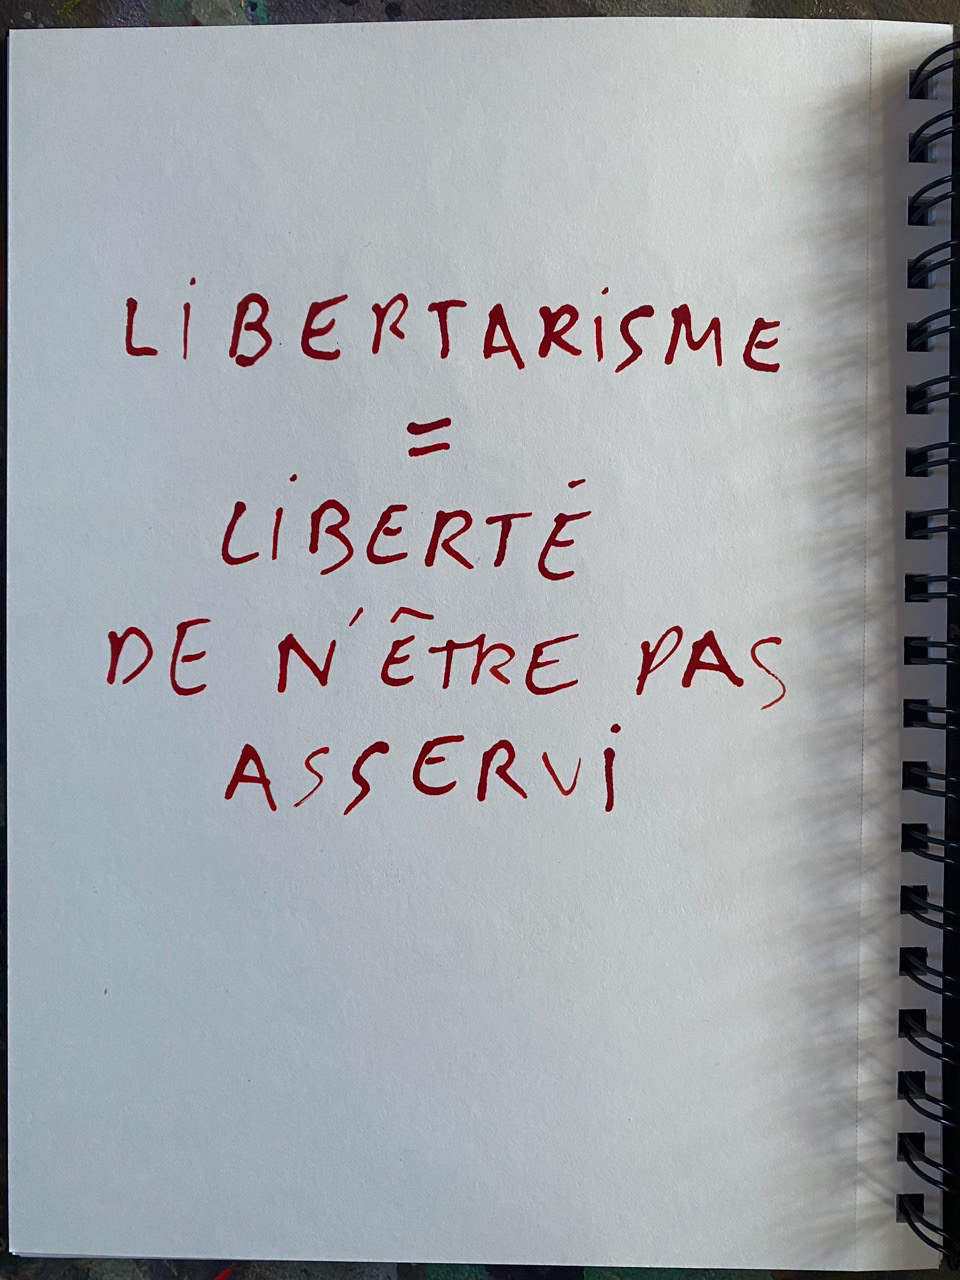 LIBERTARISME
=
LIBERTÉ
DE N'ÊTRE PAS
ASSERVI